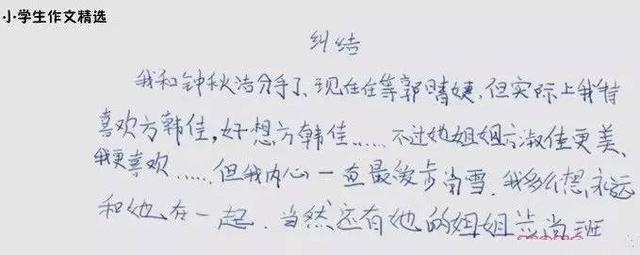 小学生作文精选
纠结
我和钟秋洁分手了、现在在等郭晴婕,但实际上我特
喜欢方韩佳,好想方韩佳……不过她姐姐方淑佳更美、
我更喜欢……但我内心一直最爱步尚雪.我多么想永远
和她在一起.当然还有她的姐姐步尚班